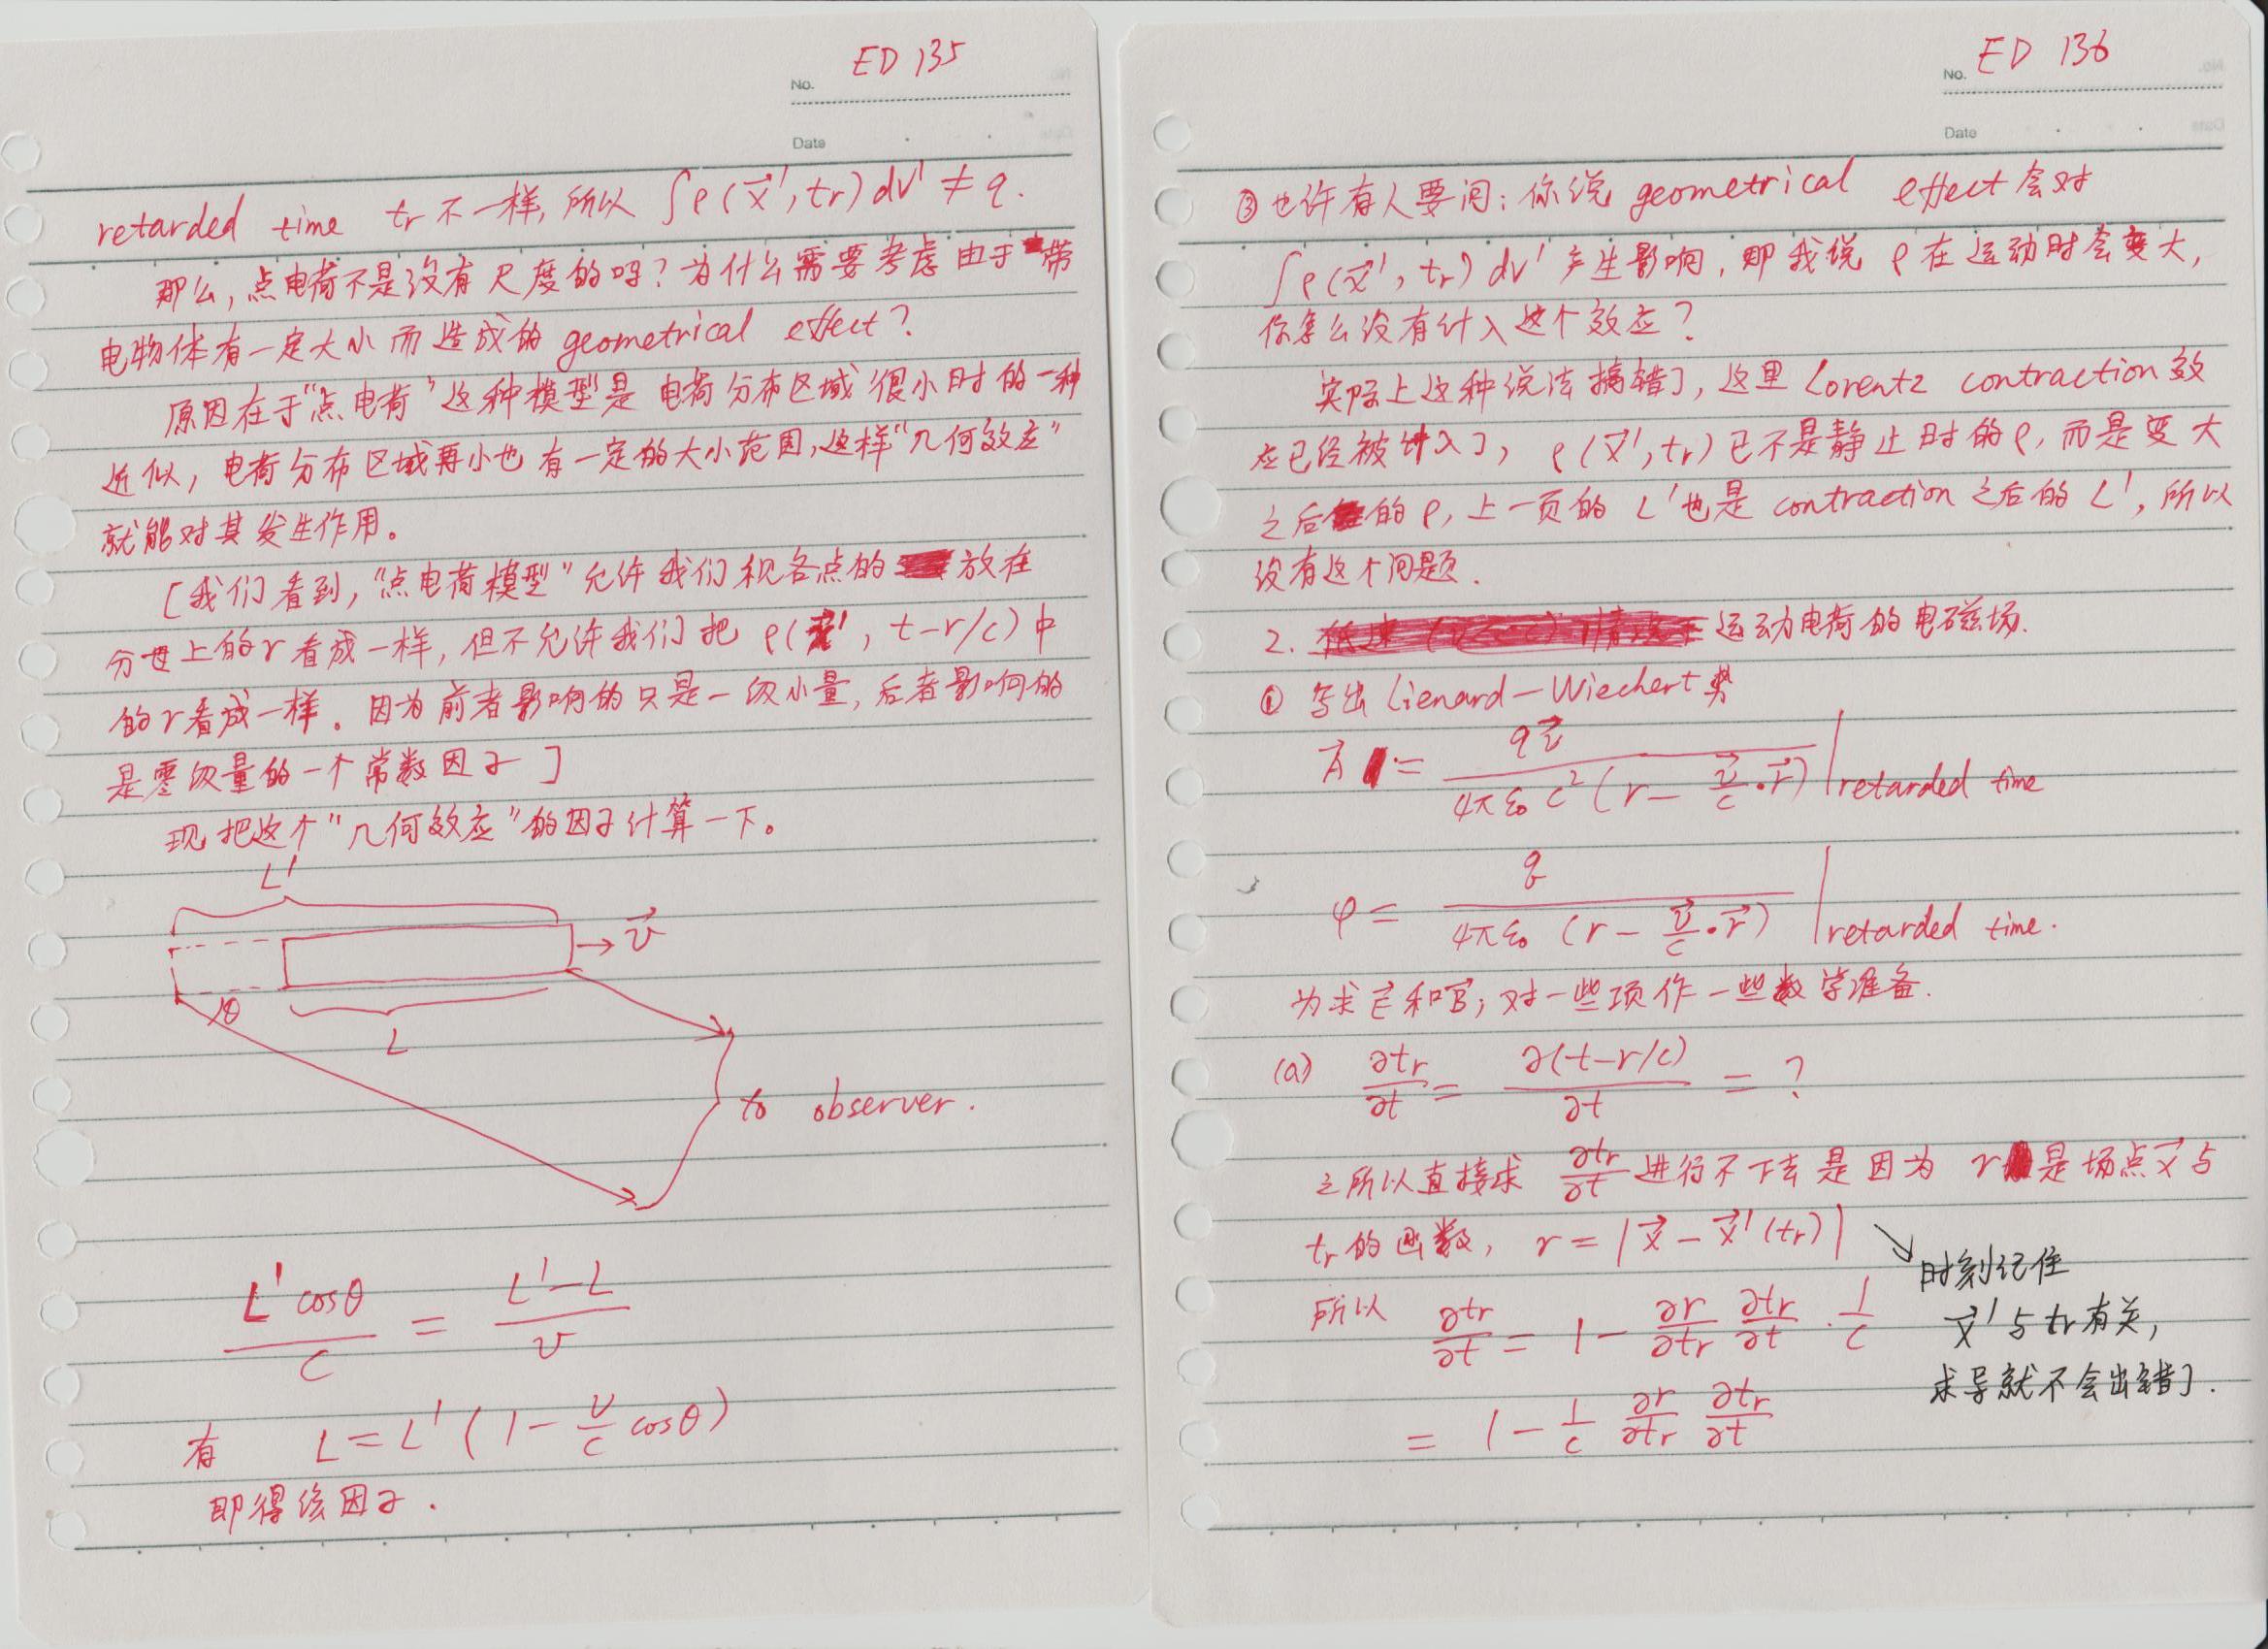 ED 135
No.
Date
retarded time tr 不一样, 所以 ∫ρ(x⃗', tr) dV' ≠ q.
那么, 点电荷不是没有尺度的吗? 为什么需要考虑由于带
电物体有一定大小而造成的 geometrical effect?
原因在于"点电荷"这种模型是电荷分布区域很小时的一种
近似, 电荷分布区域再小也有一定的大小范围, 这样"几何效应"
就能对其发生作用。
[我们看到, "点电荷模型"允许我们积各点的 放在
分母上的r看成一样, 但不允许我们把 ρ(x⃗', t-r/c) 中
的r看成一样。因为前者影响的只是一级小量, 后者影响的
是零级量的一个常数因子]
现把这个"几何效应"的因子计算一下。
L'
v⃗
θ
L
to observer.
L' cosθ / c = (L' - L) / v
有 L = L' (1 - v/c cosθ)
即得该因子.
ED 136
No.
Date
③ 也许有人要问: 你说 geometrical effect 会对
∫ρ(x⃗', tr) dV' 产生影响, 即我说 ρ 在运动时会变大,
你怎么没有计入这个效应?
实际上这种说法搞错了, 这里 Lorentz contraction 效
应已经被计入了, ρ(x⃗', tr) 已不是静止时的ρ, 而是变大
之后的ρ, 上一页的 L' 也是 contraction 之后的 L', 所以
没有这个问题.
2. 低速 (v<<c) 情况下 运动电荷的电磁场.
① 写出 Lienard-Wiechert 势
A⃗ = q v⃗ / (4πε₀ c² (r - v⃗/c · r⃗)) | retarded time
φ = q / (4πε₀ (r - v⃗/c · r⃗)) | retarded time.
为求 E⃗ 和 B⃗, 对一些项作一些数学准备.
(a) ∂tr/∂t = ∂(t-r/c)/∂t = ?
之所以直接求 ∂tr/∂t 进行不下去是因为 r 是场点 x⃗ 与
tr 的函数, r = |x⃗ - x⃗'(tr)|
时刻记住
x⃗' 与 tr 有关,
求导就不会出错了.
所以 ∂tr/∂t = 1 - ∂r/∂tr ∂tr/∂t · 1/c
= 1 - 1/c ∂r/∂tr ∂tr/∂t